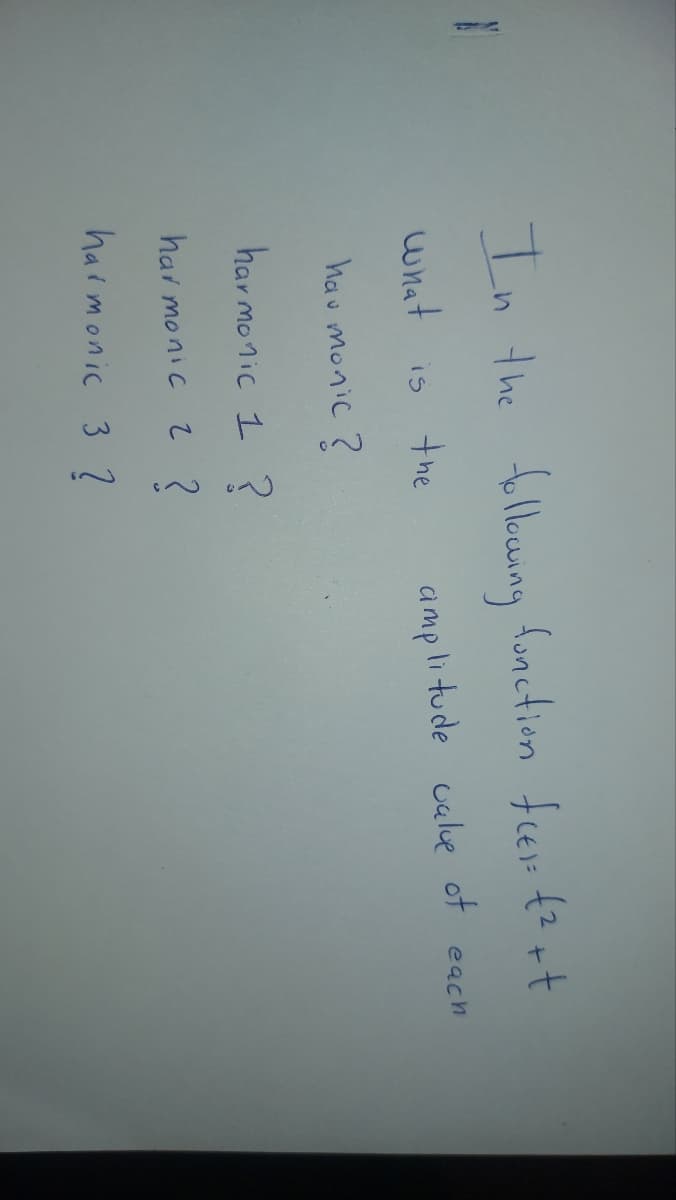 In the following function f(t)= t² + t
What is the amplitude value of each
harmonic ?
harmonic 1 ?
harmonic 2 ?
harmonic 3 ?